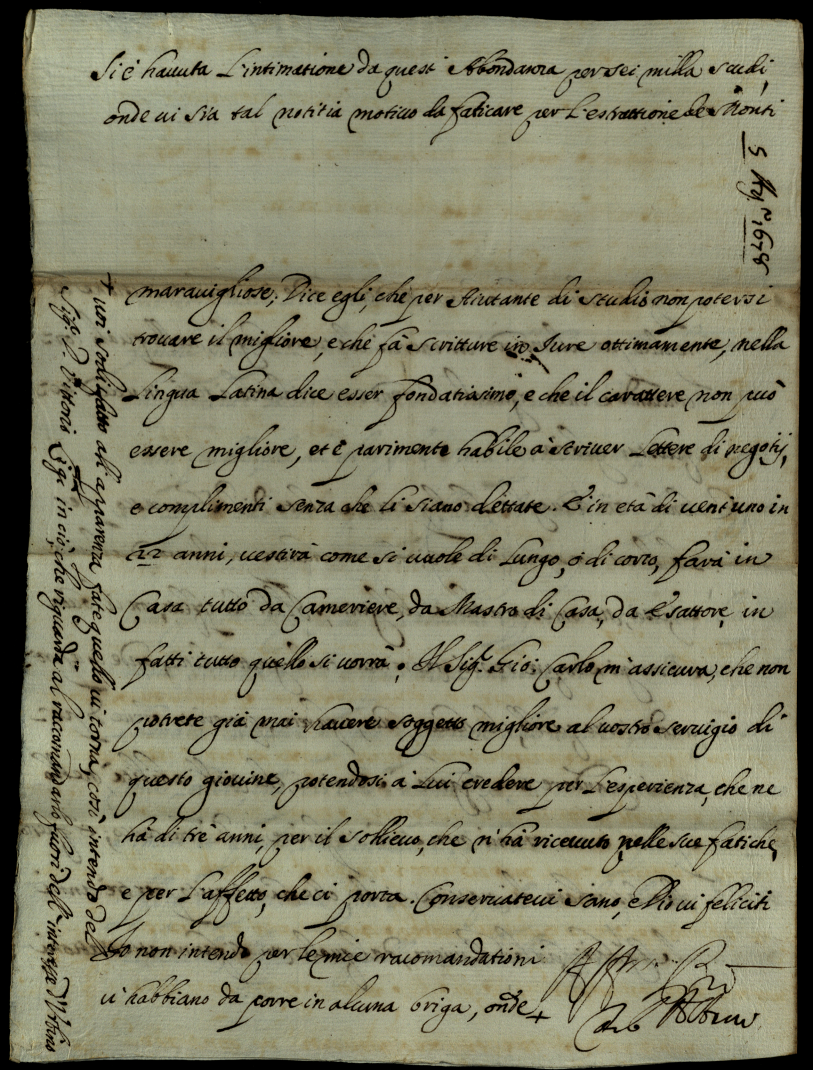 Si è havuta L'intimatione da quest' Abondanza per sei milla scudi,
onde vi sia tal notitia motivo da faticare per L'estrattione de Monti
5 Ag. 1678
maravigliose; Dice egli, che per Aiutante di studio non potersi
trovare il migliore, e che fà scritture in Jure ottimamente, nella
Lingua Latina dice esser fondatissimo, e che il carattere non può
essere migliore, et è parimente habile à scriver Lettere di negotij,
e complimenti senza che li siano dettate. È in età di vent'uno in
22 anni, vestirà come si vuole di Lungo, ò di corto, farà in
Casa tutto da Cameriere, da Mastro di Casa, da Esattore, in
fatti tutto quello si vorrà. Il Sig.r Gio: Carlo m'assicura, che non
potrete già mai havere soggetto migliore al vostro servigio di
questo giovine, potendosi à Lui credere per L'esperienza, che ne
hà di trè anni, per il sollievo, che n'hà ricevuto nelle sue fatiche,
e per L'affetto, che ci porta. Conservatevi sano, e Dio vi feliciti
Io non intendo per le mie racomandationi
vi habbiano da porre in alcuna briga, onde +
+ voi sodisfatto all'apparenza fate quello vi torna, così intendo del
Sig.r D. Vittorio in ciò, che riguarda al raccomandarlo fuori dell'interesse d'Urbino